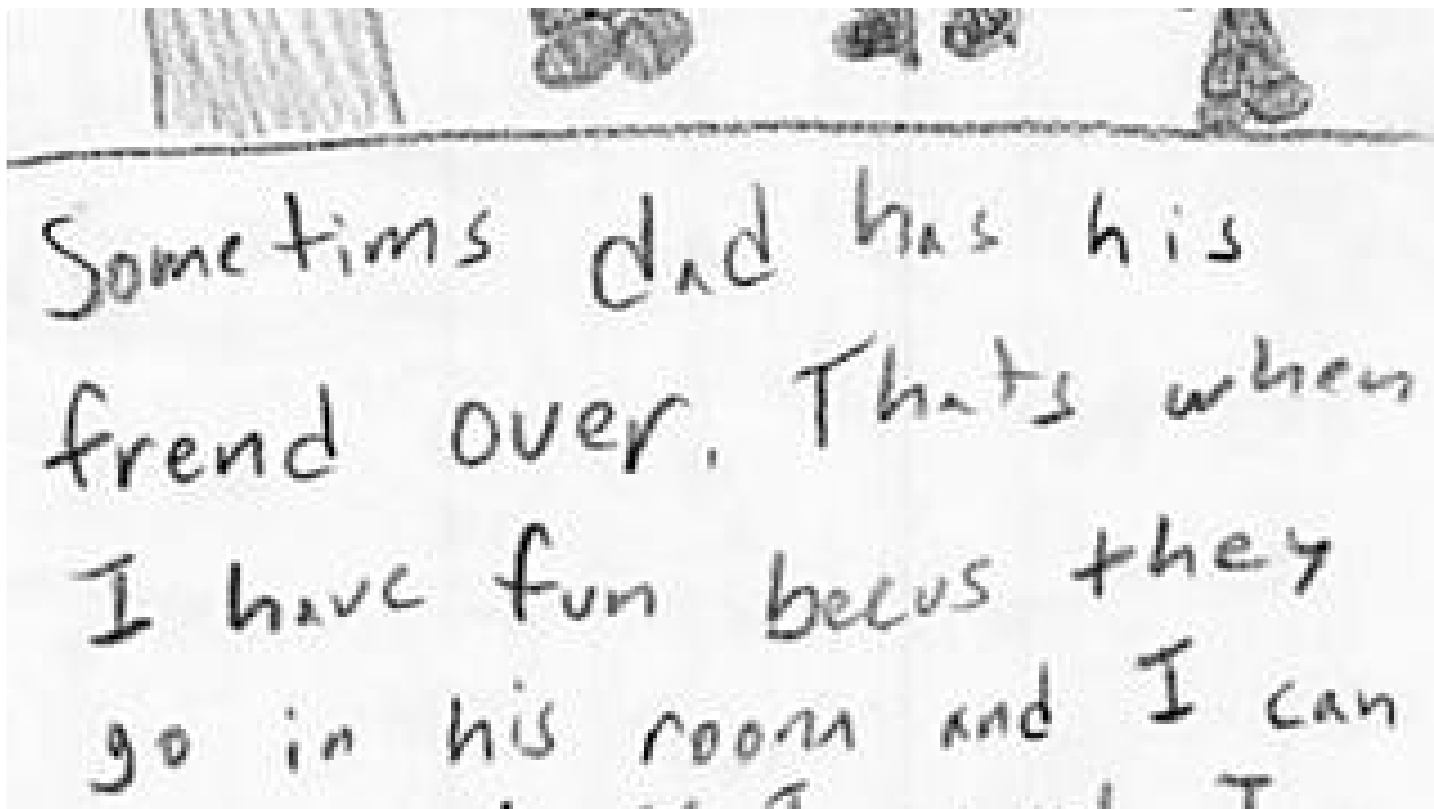 Sometims dad has his
frend over. Thats when
I have fun becus they
go in his room and I can